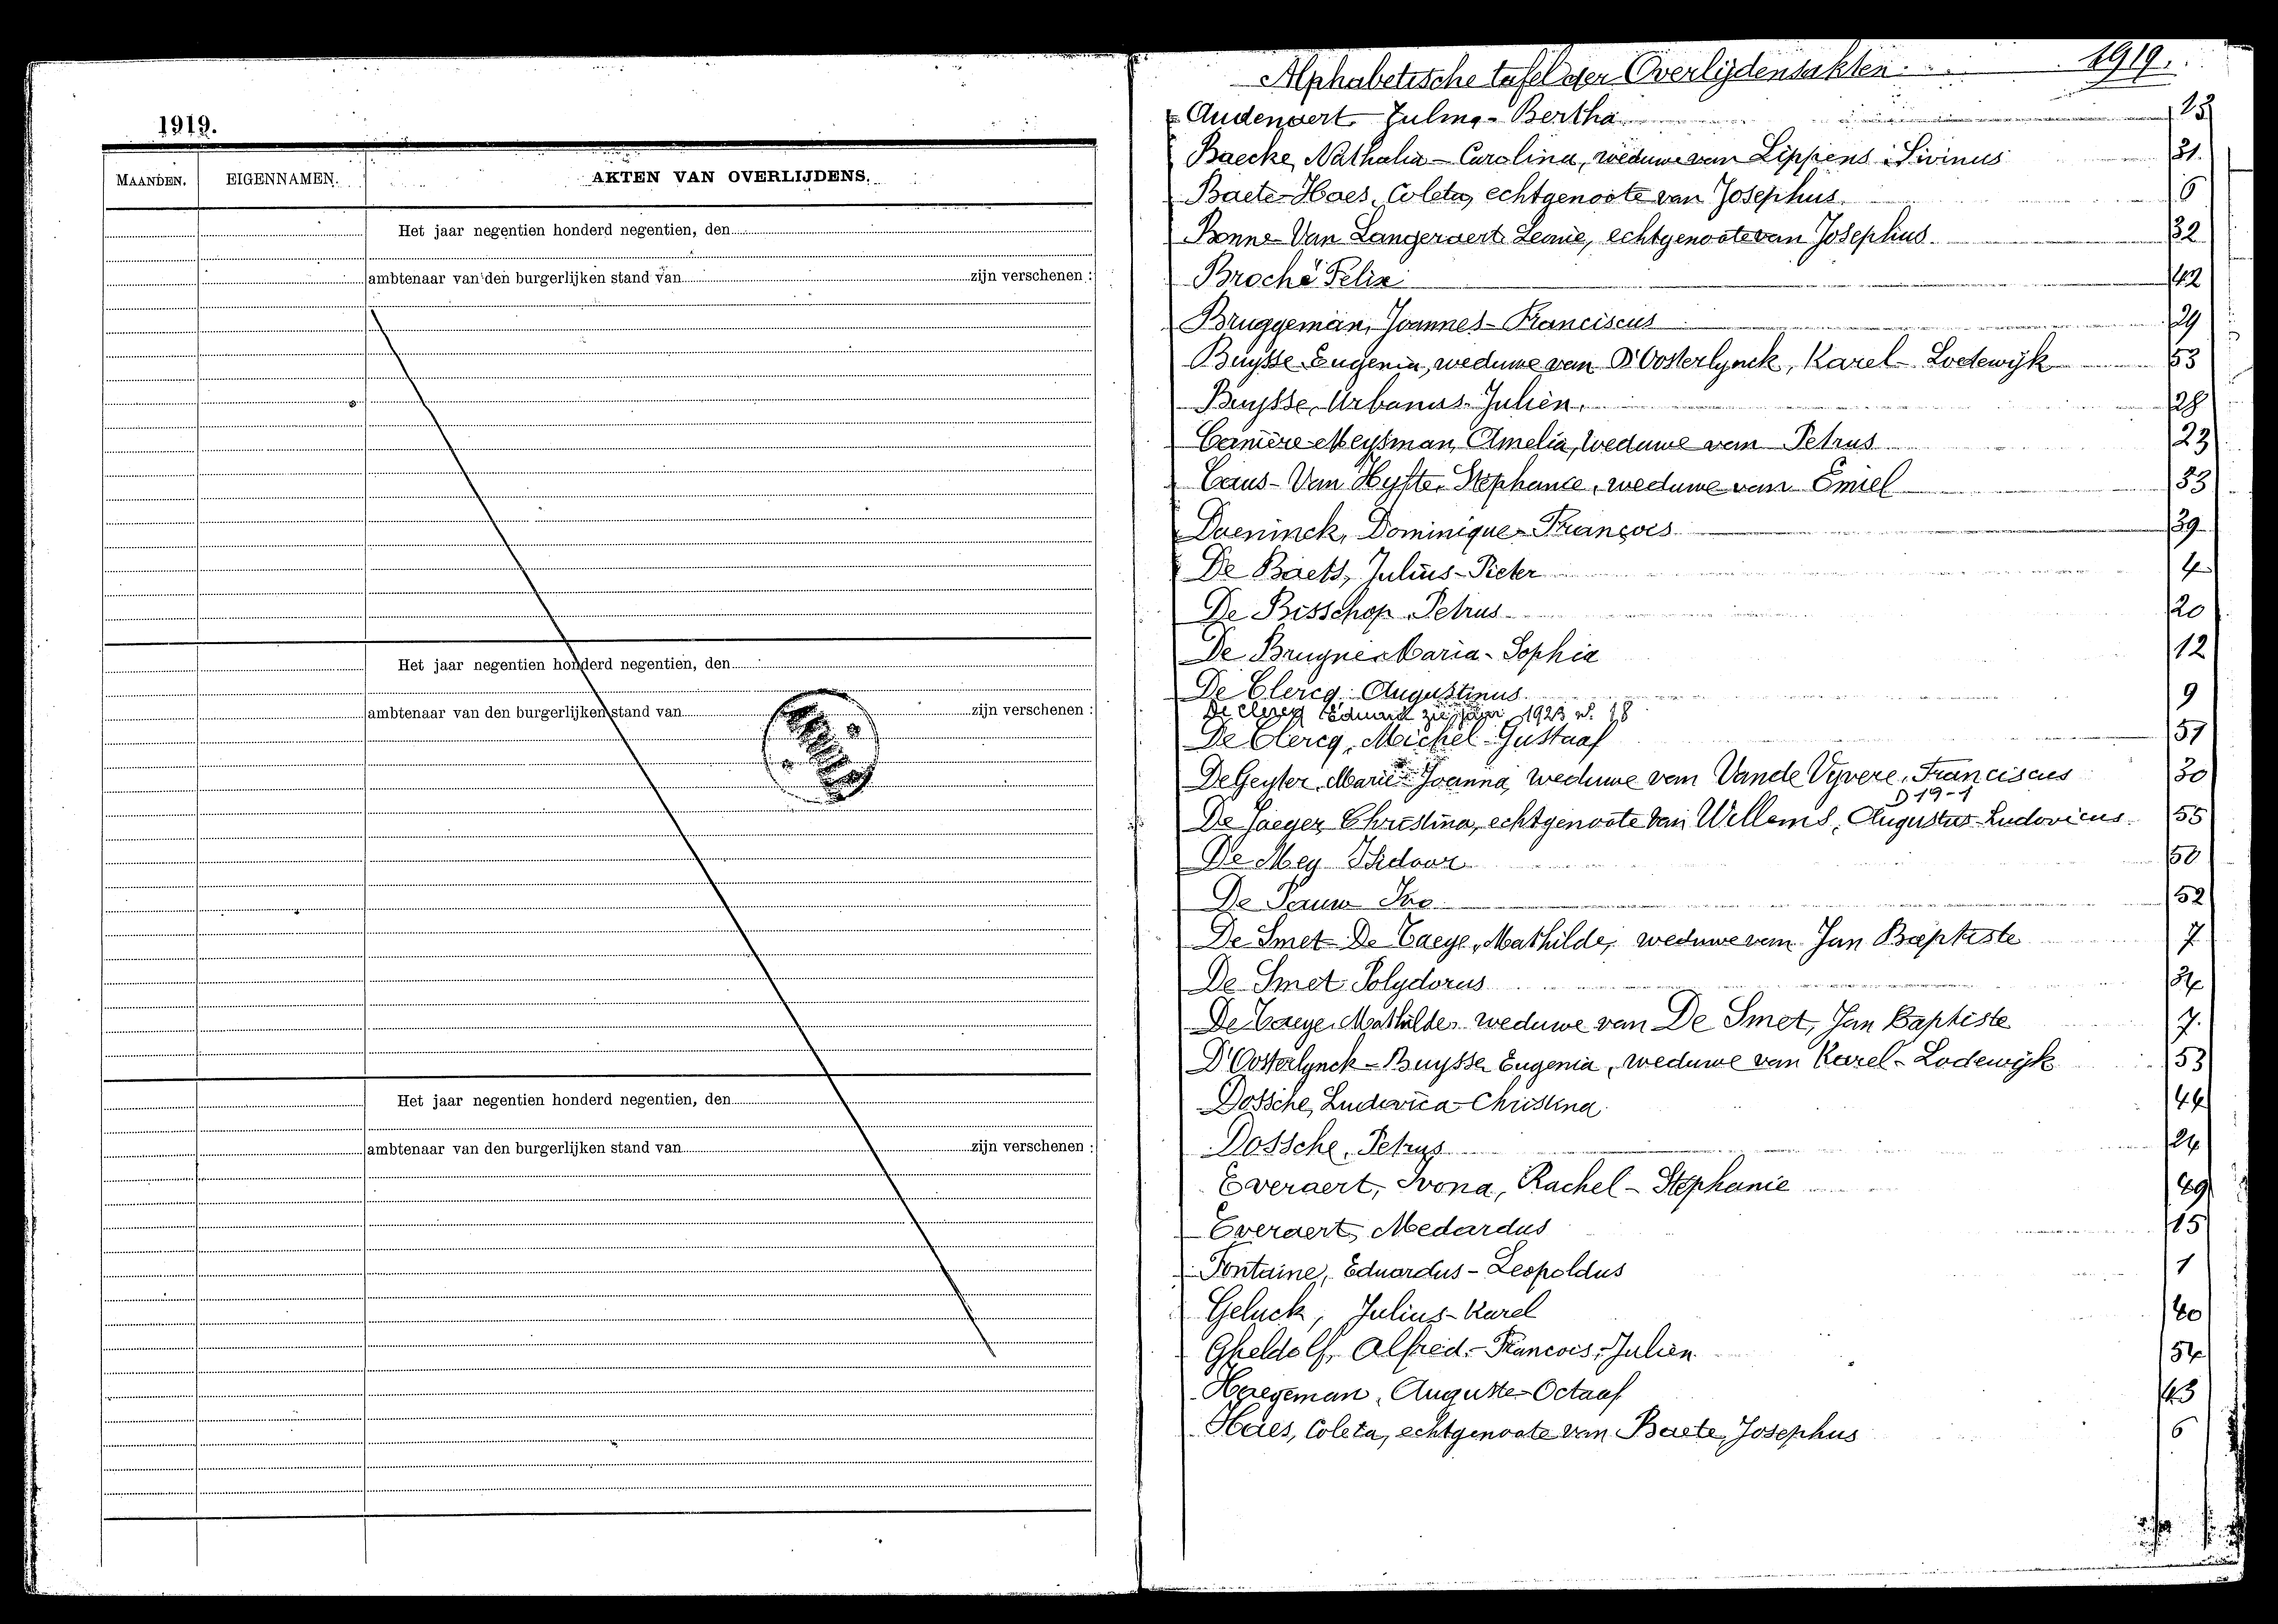 1919.
MAANDEN. EIGENNAMEN. AKTEN VAN OVERLIJDENS.
Het jaar negentien honderd negentien, den
ambtenaar van den burgerlijken stand van zijn verschenen :
Het jaar negentien honderd negentien, den
ambtenaar van den burgerlijken stand van zijn verschenen :
Het jaar negentien honderd negentien, den
ambtenaar van den burgerlijken stand van zijn verschenen :
Alphabetische tafel der Overlijdensakten 1919.
Audenaert Zulma-Bertha 25
Baecke, Nathalia-Carolina, weduwe van Lippens Livinus 31.
Baete-Haes, Coleta, echtgenoote van Josephus. 6
Bonne-Van Langeraert Leonie, echtgenoote van Josephus 32
Broché Felix 42
Bruggeman, Joannes-Franciscus 29
Buysse Eugenia, weduwe van D'Oosterlynck, Karel-Lodewijk 53
Buysse, Urbanus-Julien. 28
Carrière-Meysman, Amelia, weduwe van Petrus 23
Caus-Van Hyfte, Stephanie, weduwe van Emiel 33
Daeninck, Dominique-François 39
De Baets, Julius-Pieter 4
De Bisschop Petrus 20
De Bruyne Maria-Sophia 12
De Clercq Augustinus 9
De Clercq Eduard zie jaar 1923 n. 18
De Clercq, Michel-Gustaaf 57
De Geyter, Marie-Joanna, weduwe van Vande Vyvere, Franciscus 30
D 19-1
De Jaeger Christina, echtgenoote van Willems, Augustus-Ludovicus 55
De Mey Isidoor 50
De Pauw Ivo 52
De Smet-De Taeye, Mathilde, weduwe van Jan Baptiste 7
De Smet Polydorus 34
De Taeye, Mathilde, weduwe van De Smet, Jan Baptiste 7.
D'Oosterlynck-Buysse Eugenia, weduwe van Karel-Lodewijk 53
Dossche, Ludovica-Christina 44
Dossche, Petrus 24
Everaert, Ivona, Rachel-Stephanie 49
Everaert, Medardus 15
Fontaine, Eduardus-Leopoldus 1
Geluck, Julius-Karel 40
Gheldolf, Alfred-Francois, Julien 54
Haegeman, Auguste-Octaaf 43
Haes, Coleta, echtgenoote van Baete, Josephus 6